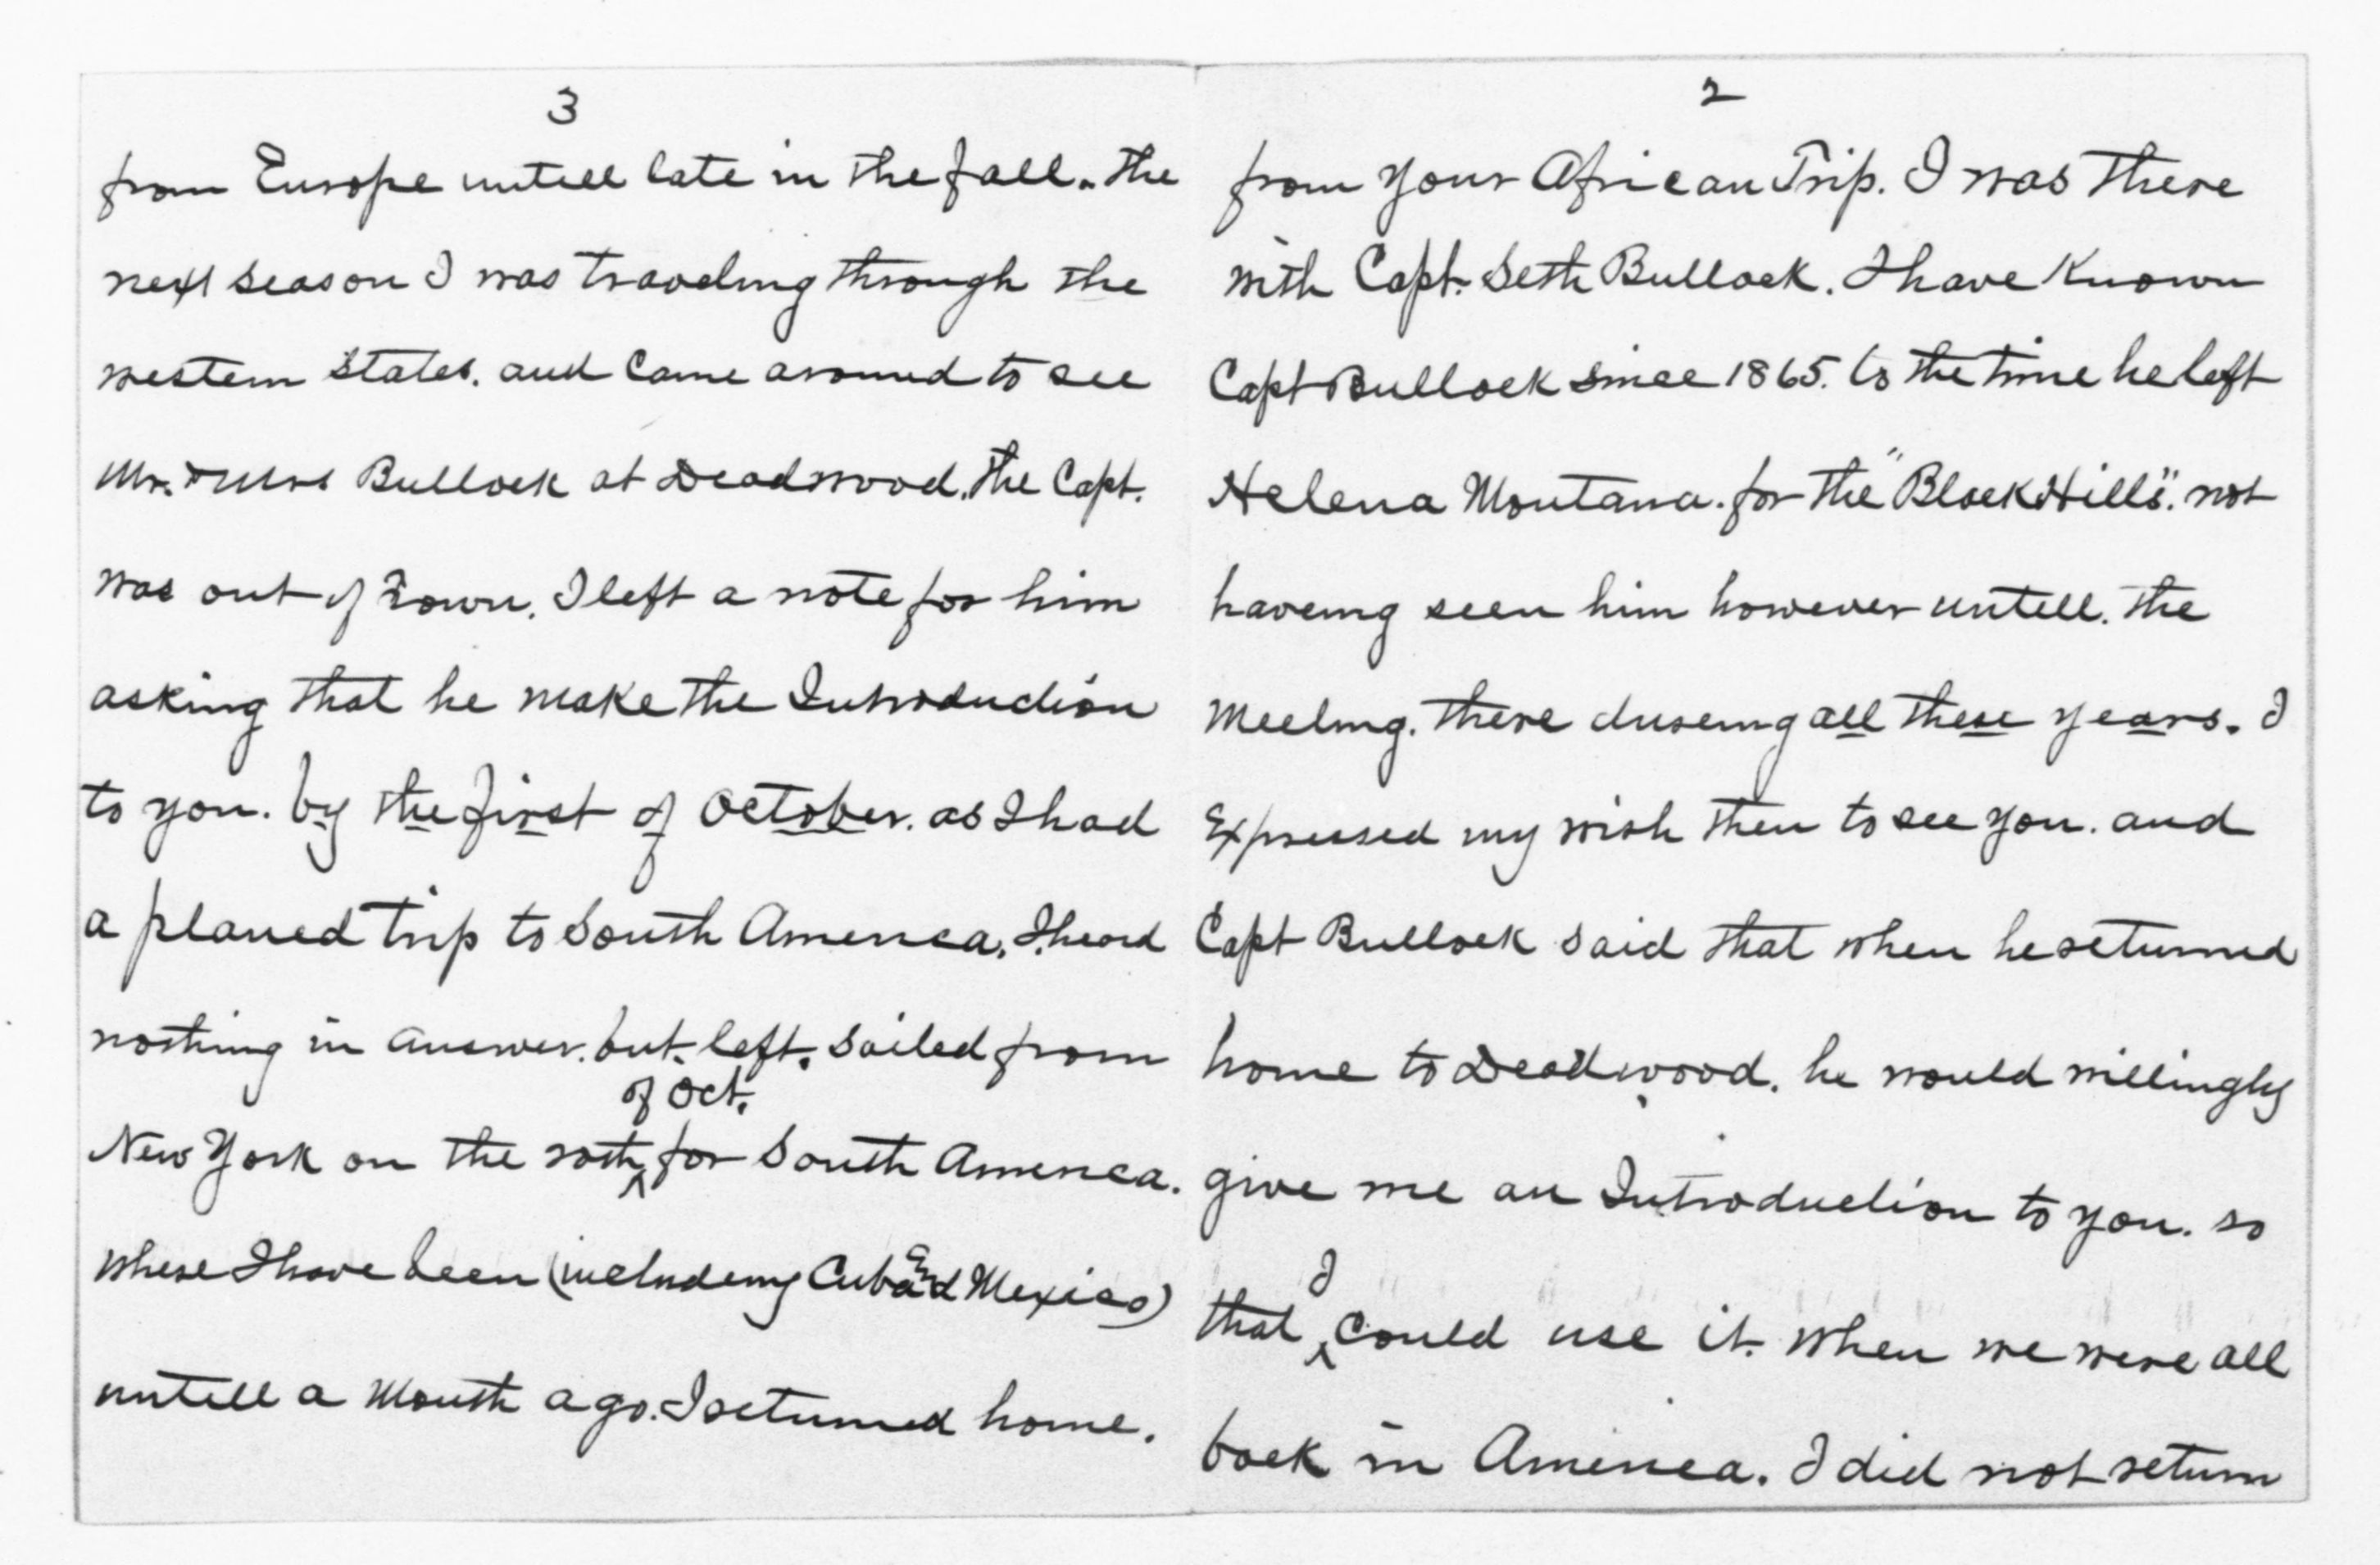 2
from your African Trip. I was there
with Capt. Seth Bullock. I have Known
Capt Bullock since 1865. to the time he left
Helena Montana. for the "Black Hills". not
haveing seen him however untill. the
Meeting. there dureing all these years. I
Expressed my wish then to see you. and
Capt Bullock said that when he returned
home to Deadwood. he would willingly
give me an Introduction to you. so
that I could use it. when we were all
back in America. I did not return
3
from Europe untill late in the fall. the
next season I was traveling through the
western States. and Came around to see
Mr. & Mrs Bullock at Deadwood. The Capt.
was out of Town. I left a note for him
asking that he make the Introduction
to you. by the first of October. as I had
a planed trip to South America. I heard
nothing in answer. but. left. Sailed from
New York on the 20th of Oct. for South America.
where I have been (includeing Cuba and Mexico)
untill a Month ago. I returned home.